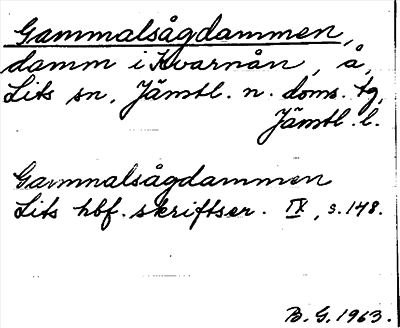 Gammalsågdammen,
damm i Kvarnån, å,
Lits sn, Jämtl. n. doms. tg,
Jämtl. l.
Gammalsågdammen
Lits hbf. skriftser. IX, s. 148.
B. G. 1963.